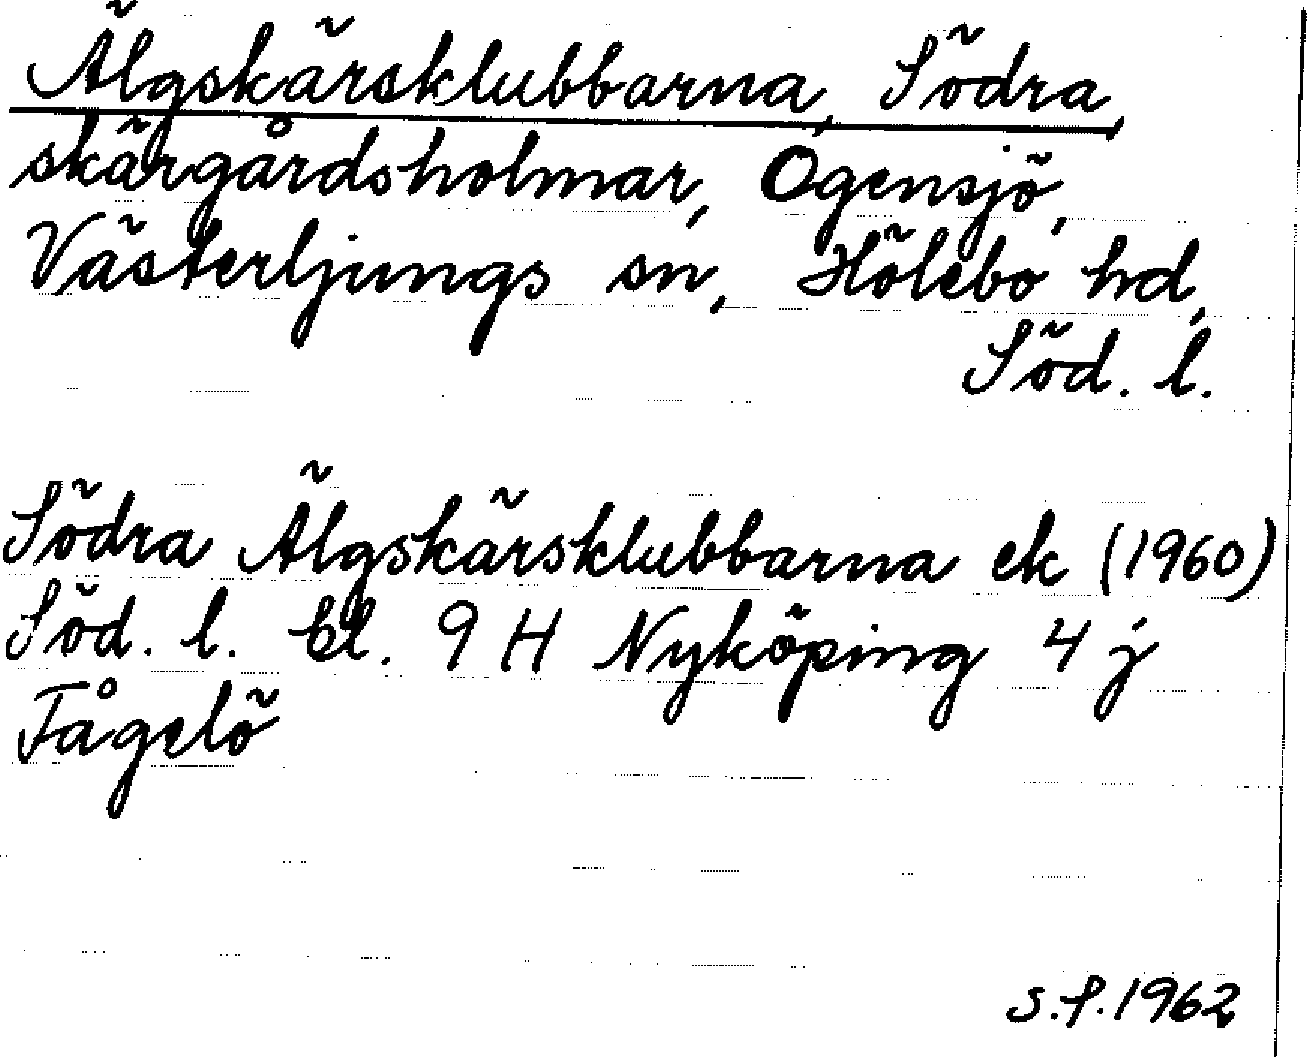 Älgskärsklubbarna, Södra,
skärgårdsholmar, Ogensjö,
Västerljungs sn, Hölebo hd,
Söd. l.
Södra Älgskärsklubbarna ek (1960)
Söd. l. bl. 9 H Nyköping 4 j
Fågelö
S.P. 1962